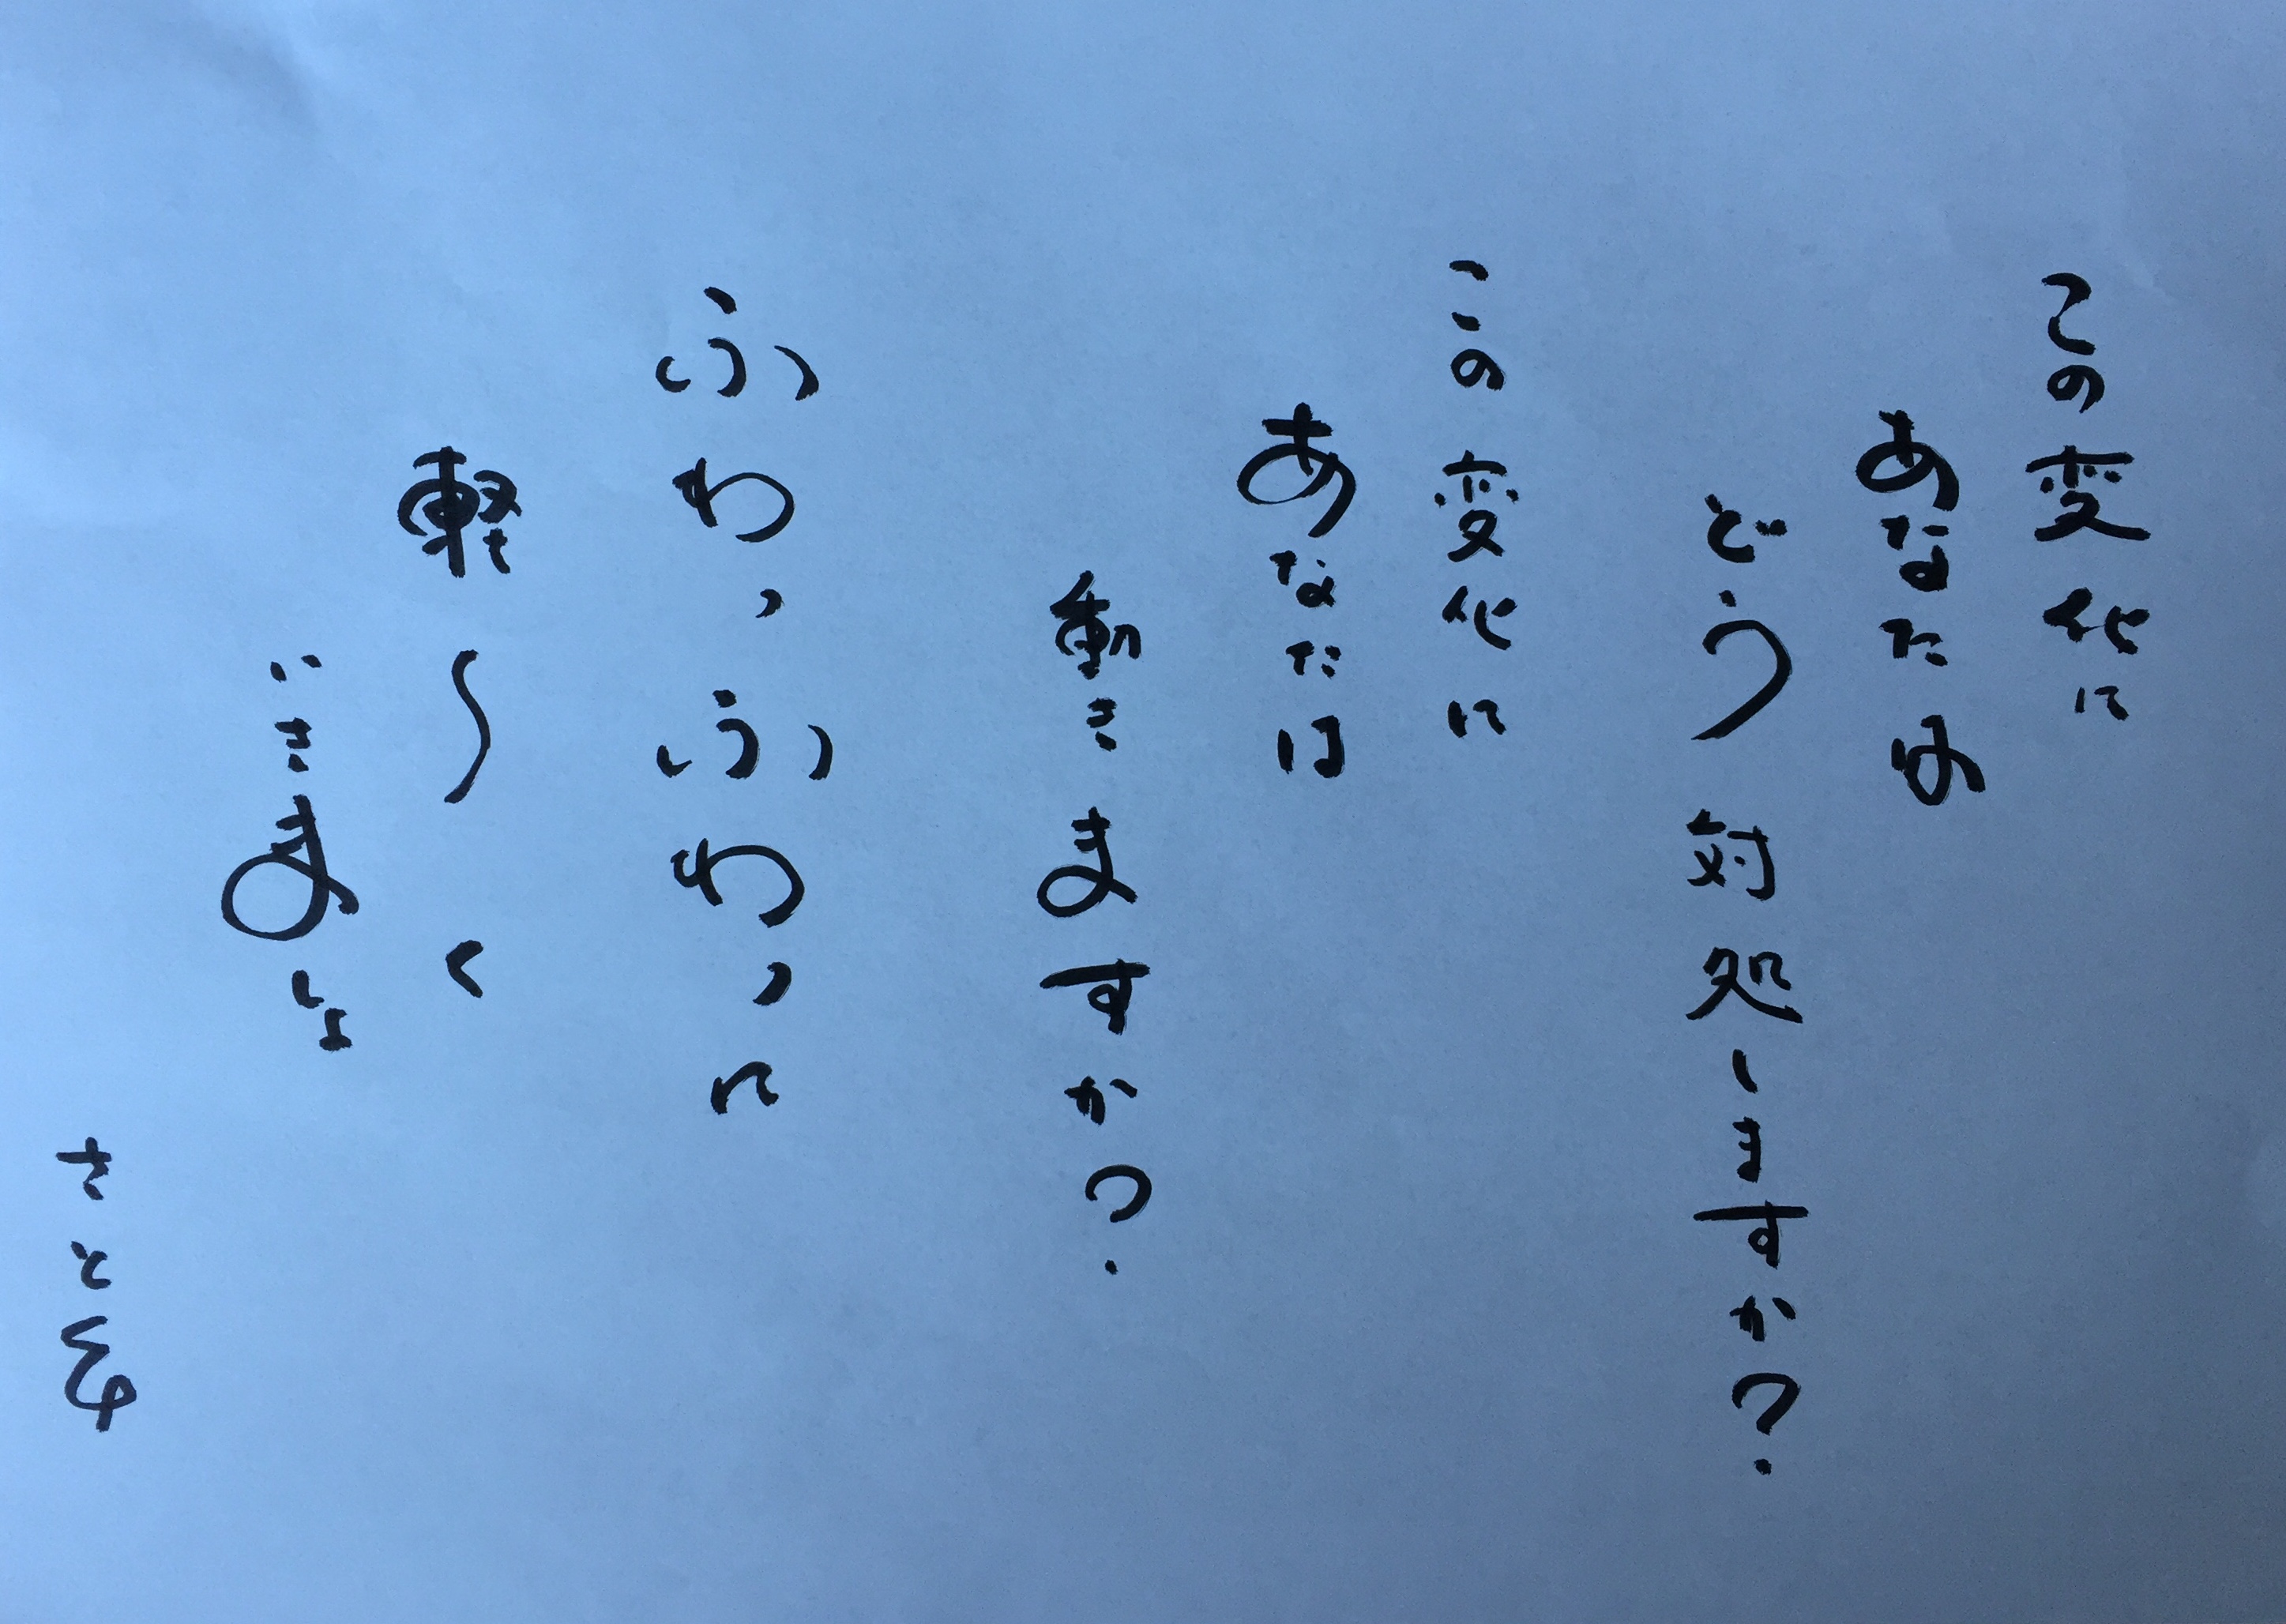 この変化に
あなたは
どう対処しますか?
この変化に
あなたは
動きますか?
ふわっふわっに
軽〜く
いきましょ